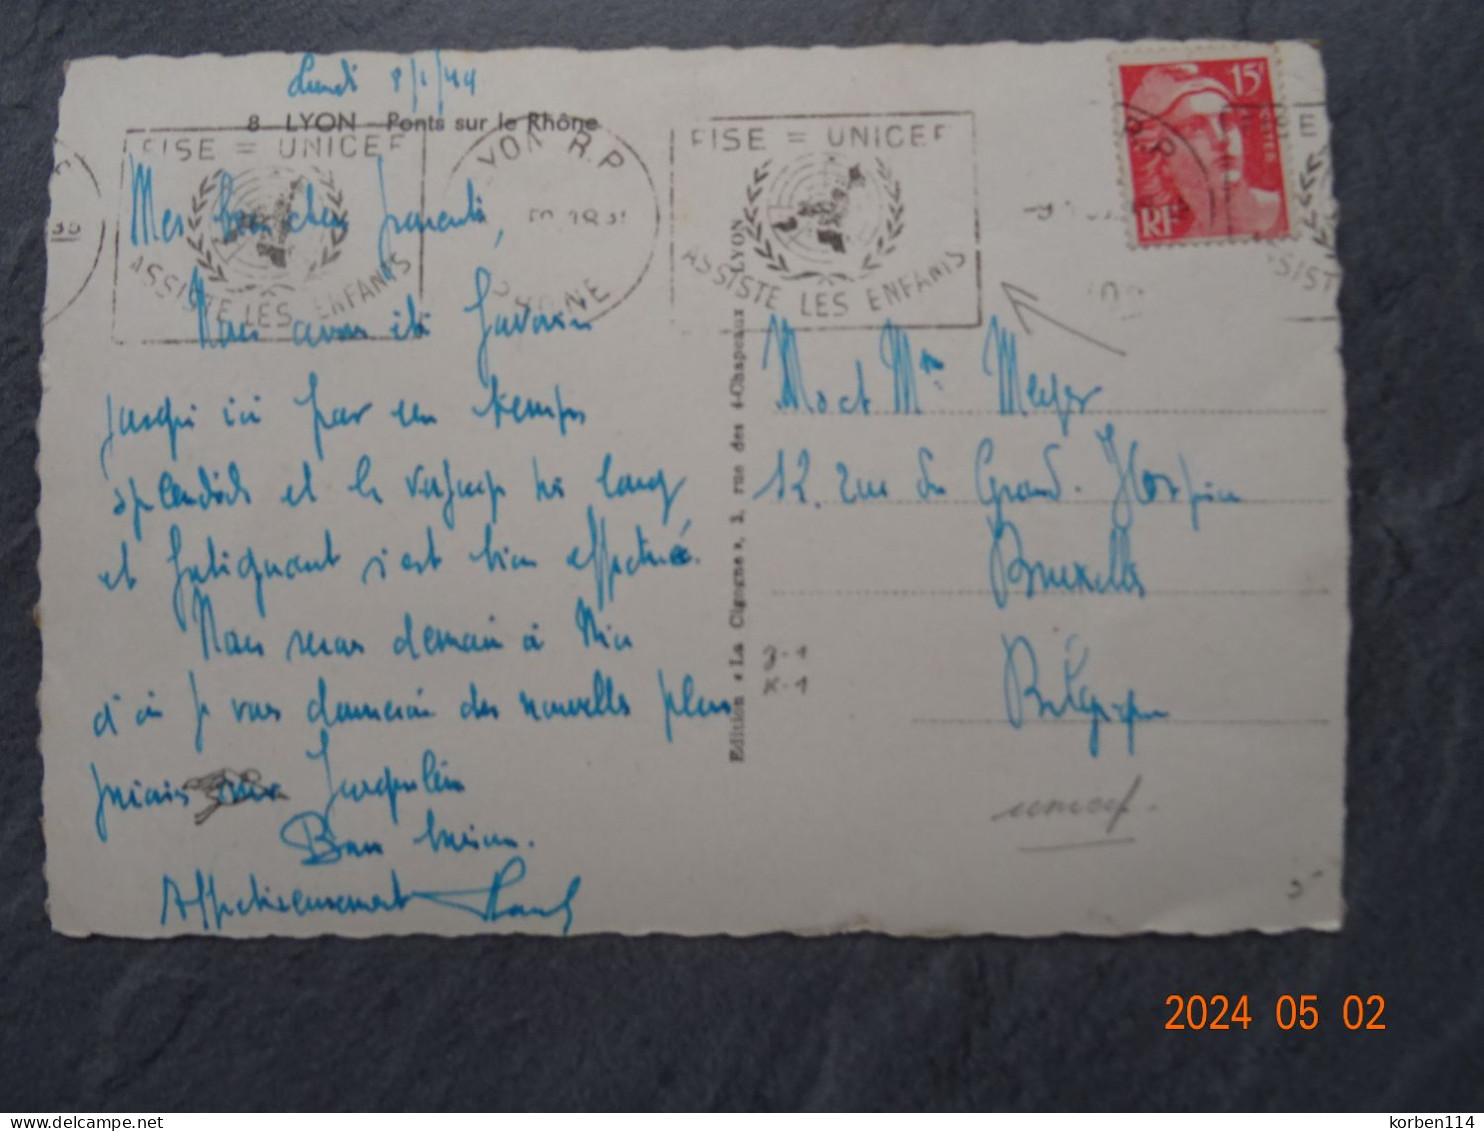 Lundi 8/1/49
8 LYON - Ponts sur le Rhône
FISE = UNICEF
ASSISTE LES ENFANTS
LYON R.P
RHONE
FISE = UNICEF
ASSISTE LES ENFANTS
15F
RF
Mes bien chers parents,
Nous avons été favorisés
jusqu'ici par un temps
splendide et le voyage si long
et fatiguant s'est bien effectué.
Nous serons demain à Nice
d'où je vous donnerai des nouvelles plus
Jacqueline
Bons baisers.
Affectueusement
Edition « La Cigogne », 3, rue des 4-Chapeaux LYON
M et Mme Meyer
12, rue du Grand-Hospice
Bruxelles
Belgique
J-1
K-1
unicef.
5
2024 05 02
korben114